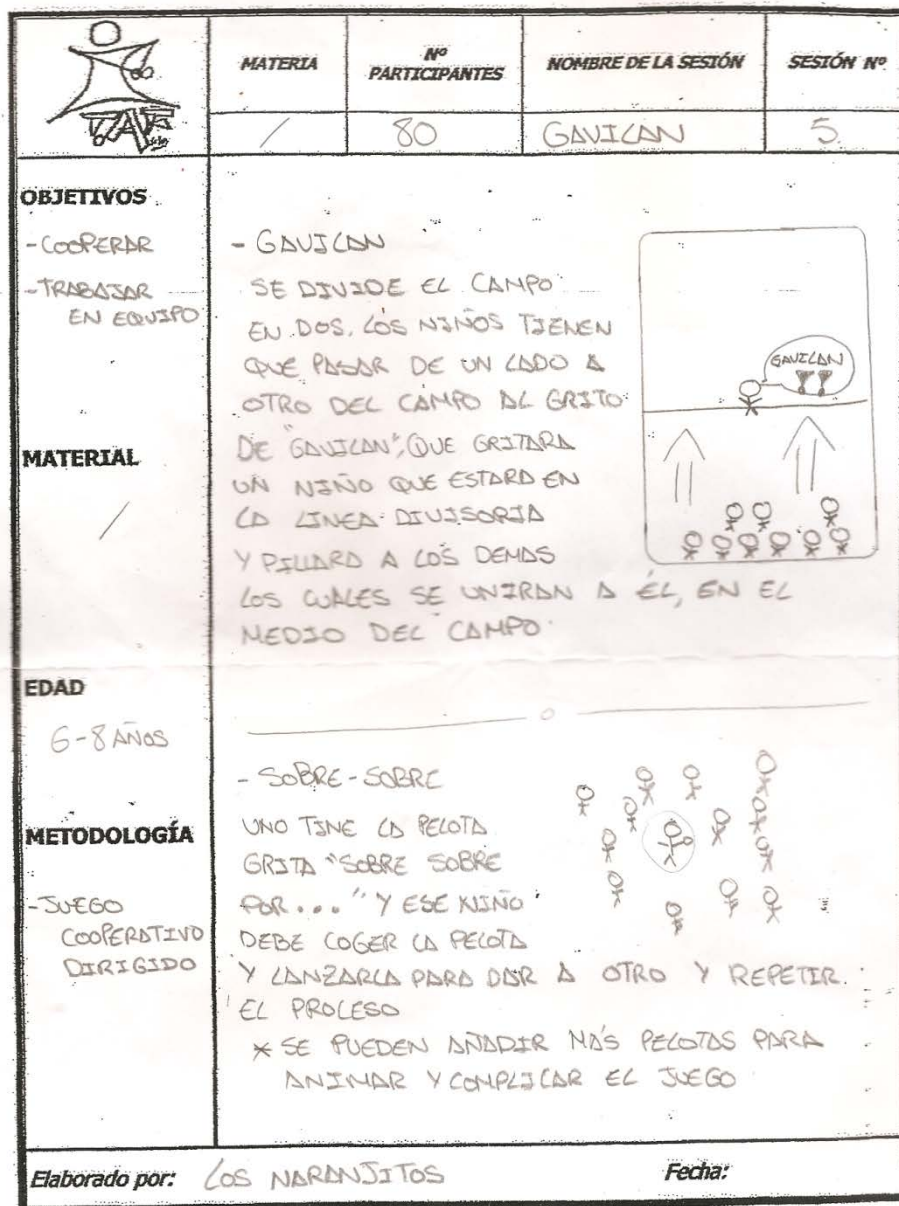 MATERIA
Nº PARTICIPANTES
NOMBRE DE LA SESIÓN
SESIÓN Nº
/
80
GAVILAN
5.
OBJETIVOS
- COOPERAR
- TRABAJAR
EN EQUIPO
MATERIAL
/
EDAD
6-8 AÑOS
METODOLOGÍA
- JUEGO
COOPERATIVO
DIRIGIDO
- GAVILAN
SE DIVIDE EL CAMPO
EN DOS. LOS NIÑOS TIENEN
QUE PASAR DE UN LADO A
OTRO DEL CAMPO AL GRITO
DE "GAVILAN", QUE GRITARA
UN NIÑO QUE ESTARA EN
LA LINEA DIVISORIA
Y PILLARA A LOS DEMAS
LOS CUALES SE UNIRAN A ÉL, EN EL
MEDIO DEL CAMPO.
GAVILAN
!!
- SOBRE-SOBRE
UNO TINE LA PELOTA
GRITA "SOBRE SOBRE
POR..." Y ESE NIÑO
DEBE COGER LA PELOTA
Y LANZARLA PARA DAR A OTRO Y REPETIR
EL PROCESO
* SE PUEDEN AÑADIR MÁS PELOTAS PARA
ANIMAR Y COMPLICAR EL JUEGO
Elaborado por: LOS NARANJITOS
Fecha: